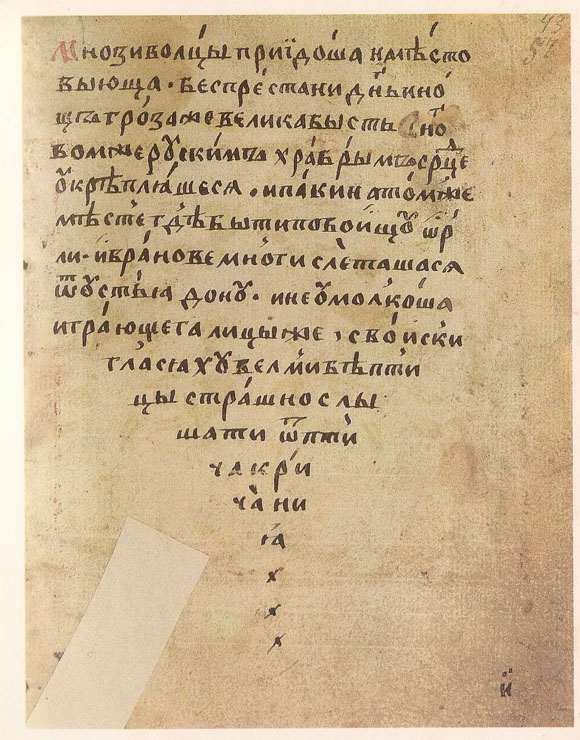 43
57
Мнози волцы прїидоша на мѣсто
выюща · беспрестани дн҃ьи но
щъ гроза же велика бысть но
вом же рускимъ храбрымъ ср҃це
ѹкрѣпляшеся . и паки на том же
мѣсте гдѣ быти побоищѹ ѡр
ли · и вранове многи слеташася
ѿ ѹстья донѹ · и не ѹмолкоша
играюще галицы же , свои ски
гласяхѹ велми вѣпти
цы страшно слы
шати ѿ пти
ча кри
чани
ꙗ
х
х
х
й